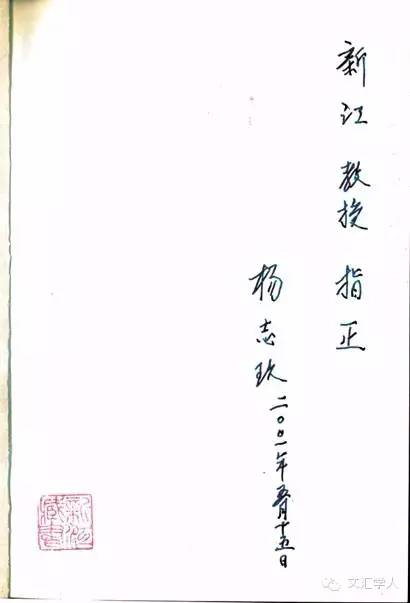 新江教授 指正
杨志玖
二〇〇一年五月十五日
新江藏书
文汇学人